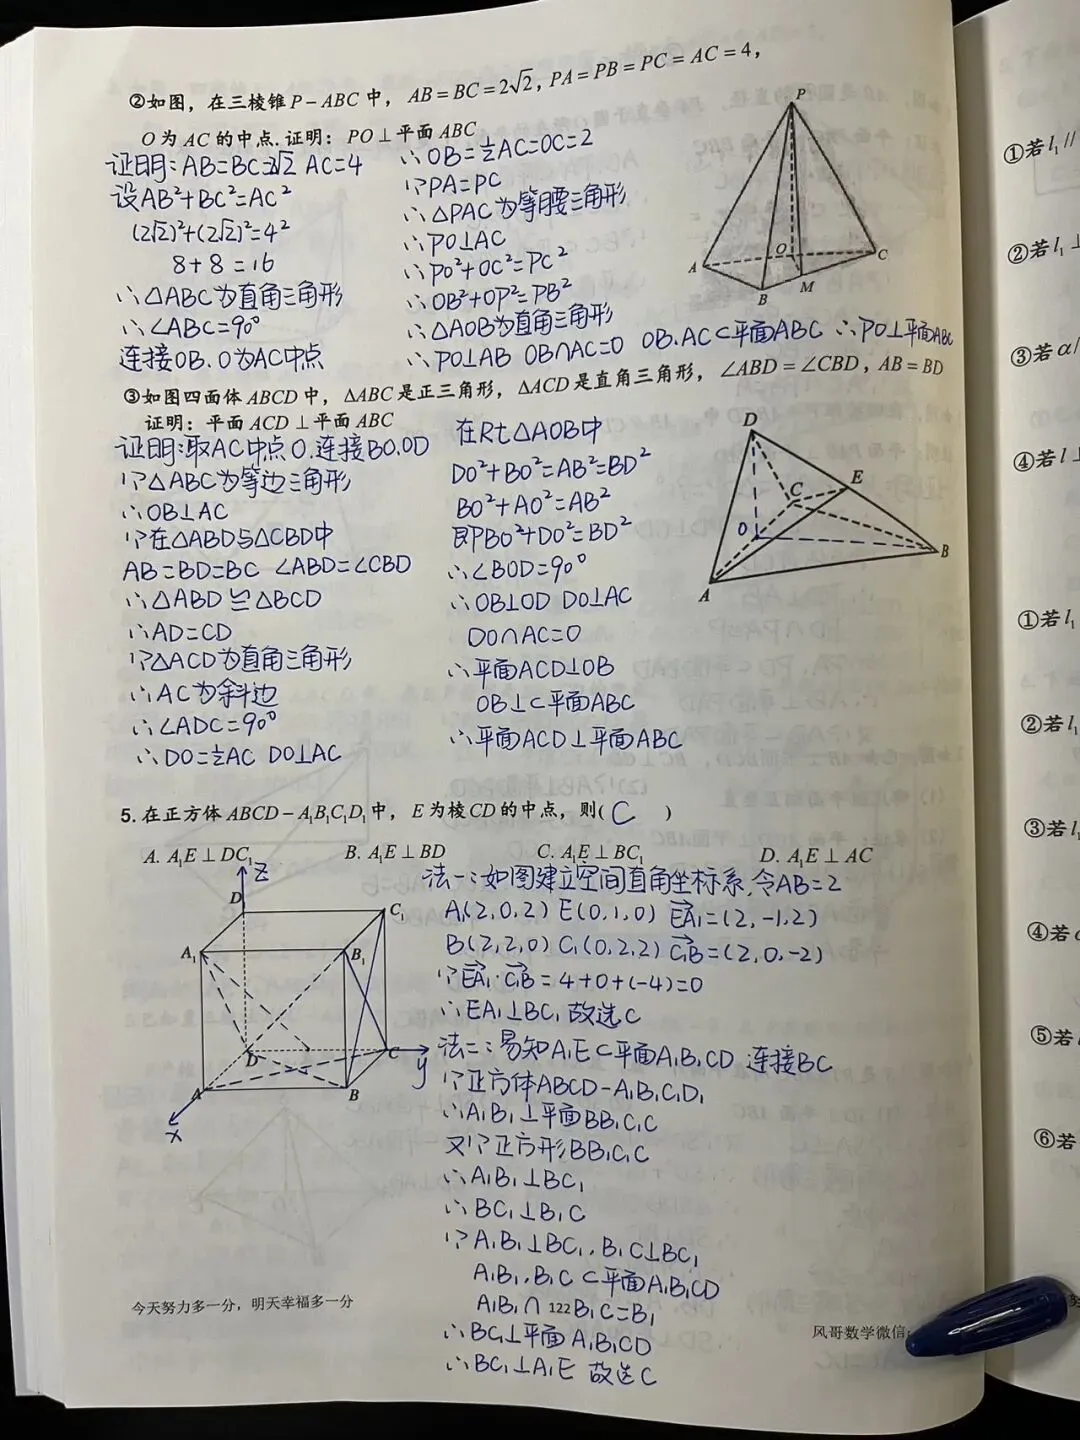 ②如图，在三棱锥P-ABC中，AB=BC=2√2，PA=PB=PC=AC=4，
O为AC的中点.证明：PO⊥平面ABC
证明:AB=BC=2√2 AC=4
设AB²+BC²=AC²
(2√2)²+(2√2)²=4²
8+8=16
∴△ABC为直角三角形
∴∠ABC=90°
连接OB.O为AC中点
∴OB=½AC=OC=2
∵PA=PC
∴△PAC为等腰三角形
∴PO⊥AC
∴PO²+OC²=PC²
∴OB²+OP²=PB²
∴△AOB为直角三角形
∴PO⊥AB OB∩AC=O OB.AC⊂平面ABC ∴PO⊥平面ABC
P
A
O
C
B
M
③如图四面体ABCD中，△ABC是正三角形，△ACD是直角三角形，∠ABD=∠CBD，AB=BD
证明：平面ACD⊥平面ABC
证明:取AC中点O.连接BO.OD
∵△ABC为等边三角形
∴OB⊥AC
∵在△ABD与△CBD中
AB=BD=BC ∠ABD=∠CBD
∴△ABD≌△BCD
∴AD=CD
∵△ACD为直角三角形
∴AC为斜边
∴∠ADC=90°
∴DO=½AC DO⊥AC
在Rt△AOB中
DO²+BO²=AB²=BD²
BO²+AO²=AB²
即BO²+DO²=BD²
∴∠BOD=90°
∴OB⊥OD DO⊥AC
DO∩AC=O
∴平面ACD⊥OB
OB⊥⊂平面ABC
∴平面ACD⊥平面ABC
D
E
C
O
B
A
5.在正方体ABCD-A₁B₁C₁D₁中，E为棱CD的中点，则( C )
A. A₁E⊥DC₁ B. A₁E⊥BD C. A₁E⊥BC₁ D. A₁E⊥AC
法一:如图建立空间直角坐标系,令AB=2
A₁(2,0,2) E(0,1,0) EA₁=(2,-1,2)
B(2,2,0) C₁(0,2,2) C₁B=(2,0,-2)
∵EA₁·C₁B=4+0+(-4)=0
∴EA₁⊥BC₁ 故选C
法二:易知A₁E⊂平面A₁B₁CD 连接BC
∵正方体ABCD-A₁B₁C₁D₁
∴A₁B₁⊥平面BB₁C₁C
又∵正方形BB₁C₁C
∴A₁B₁⊥BC₁
∴BC₁⊥B₁C
∵A₁B₁⊥BC₁,B₁C⊥BC₁
A₁B₁,B₁C⊂平面A₁B₁CD
A₁B₁∩B₁C=B₁
∴BC₁⊥平面A₁B₁CD
∴BC₁⊥A₁E 故选C
z
D
C₁
A₁
B₁
D
C
y
A
B
x
今天努力多一分，明天幸福多一分
122
风哥数学微信:
①若l₁//
②若l₁⊥
③若α/
④若l⊥
①若l₁
②若l₁
③若l₁
④若
⑤若
⑥若